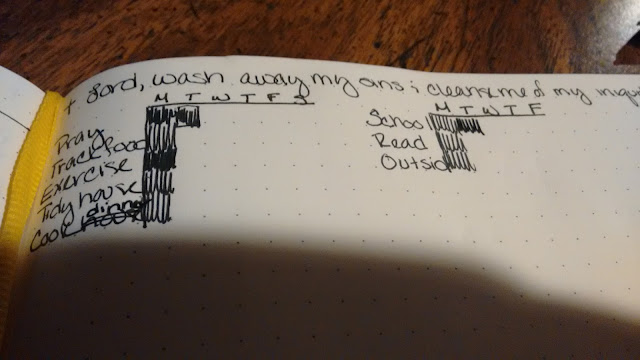 + Lord, wash away my sins & cleanse me of my
M T W T F S
Pray
Track food
Exercise
Tidy house
Cook dinner
M T W T F
School
Read
Outside